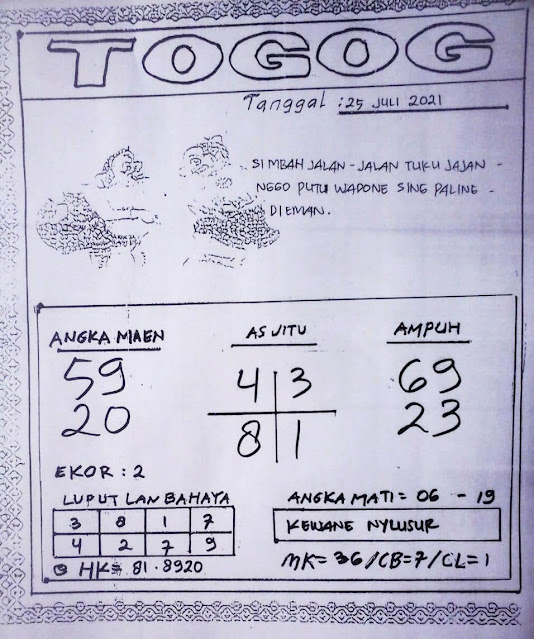 TOGOG
Tanggal : 25 JULI 2021
SIMBAH JALAN - JALAN TUKU JAJAN -
NGGO PUTU WADONE SING PALING -
DIEMAN.
ANGKA MAEN
59
20
AS JITU
4 3
8 1
AMPUH
69
23
EKOR : 2
LUPUT LAN BAHAYA
3 8 1 7
4 2 7 9
HK= 81.8920
ANGKA MATI = 06 - 19
KEWANE NYLUSUR
MK= 36/CB=7/CL=1